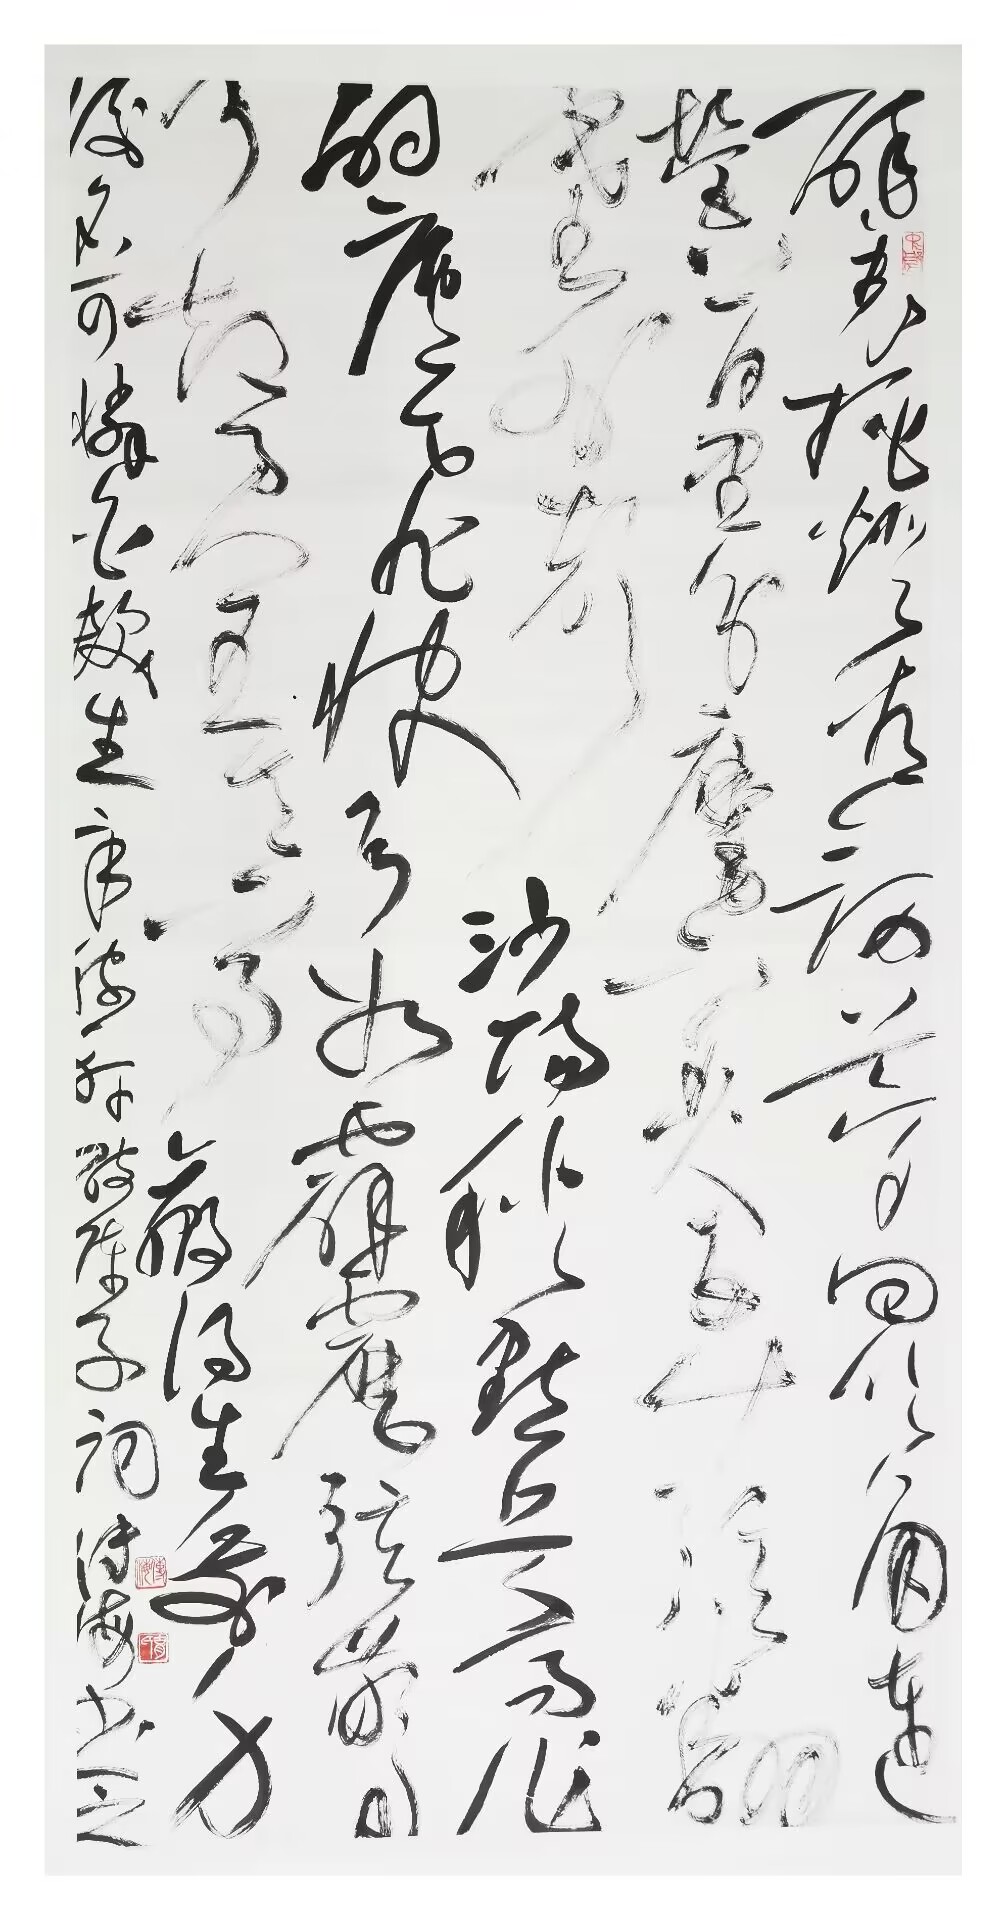 醉里挑灯看剑梦回吹角连
營八百里分麾下炙五十弦翻
塞外声沙场秋點兵馬作
的盧飞快弓如霹靂弦驚
了却君王天下事赢得生前身
後名可憐白髮生辛稼轩破陣子词传海书之